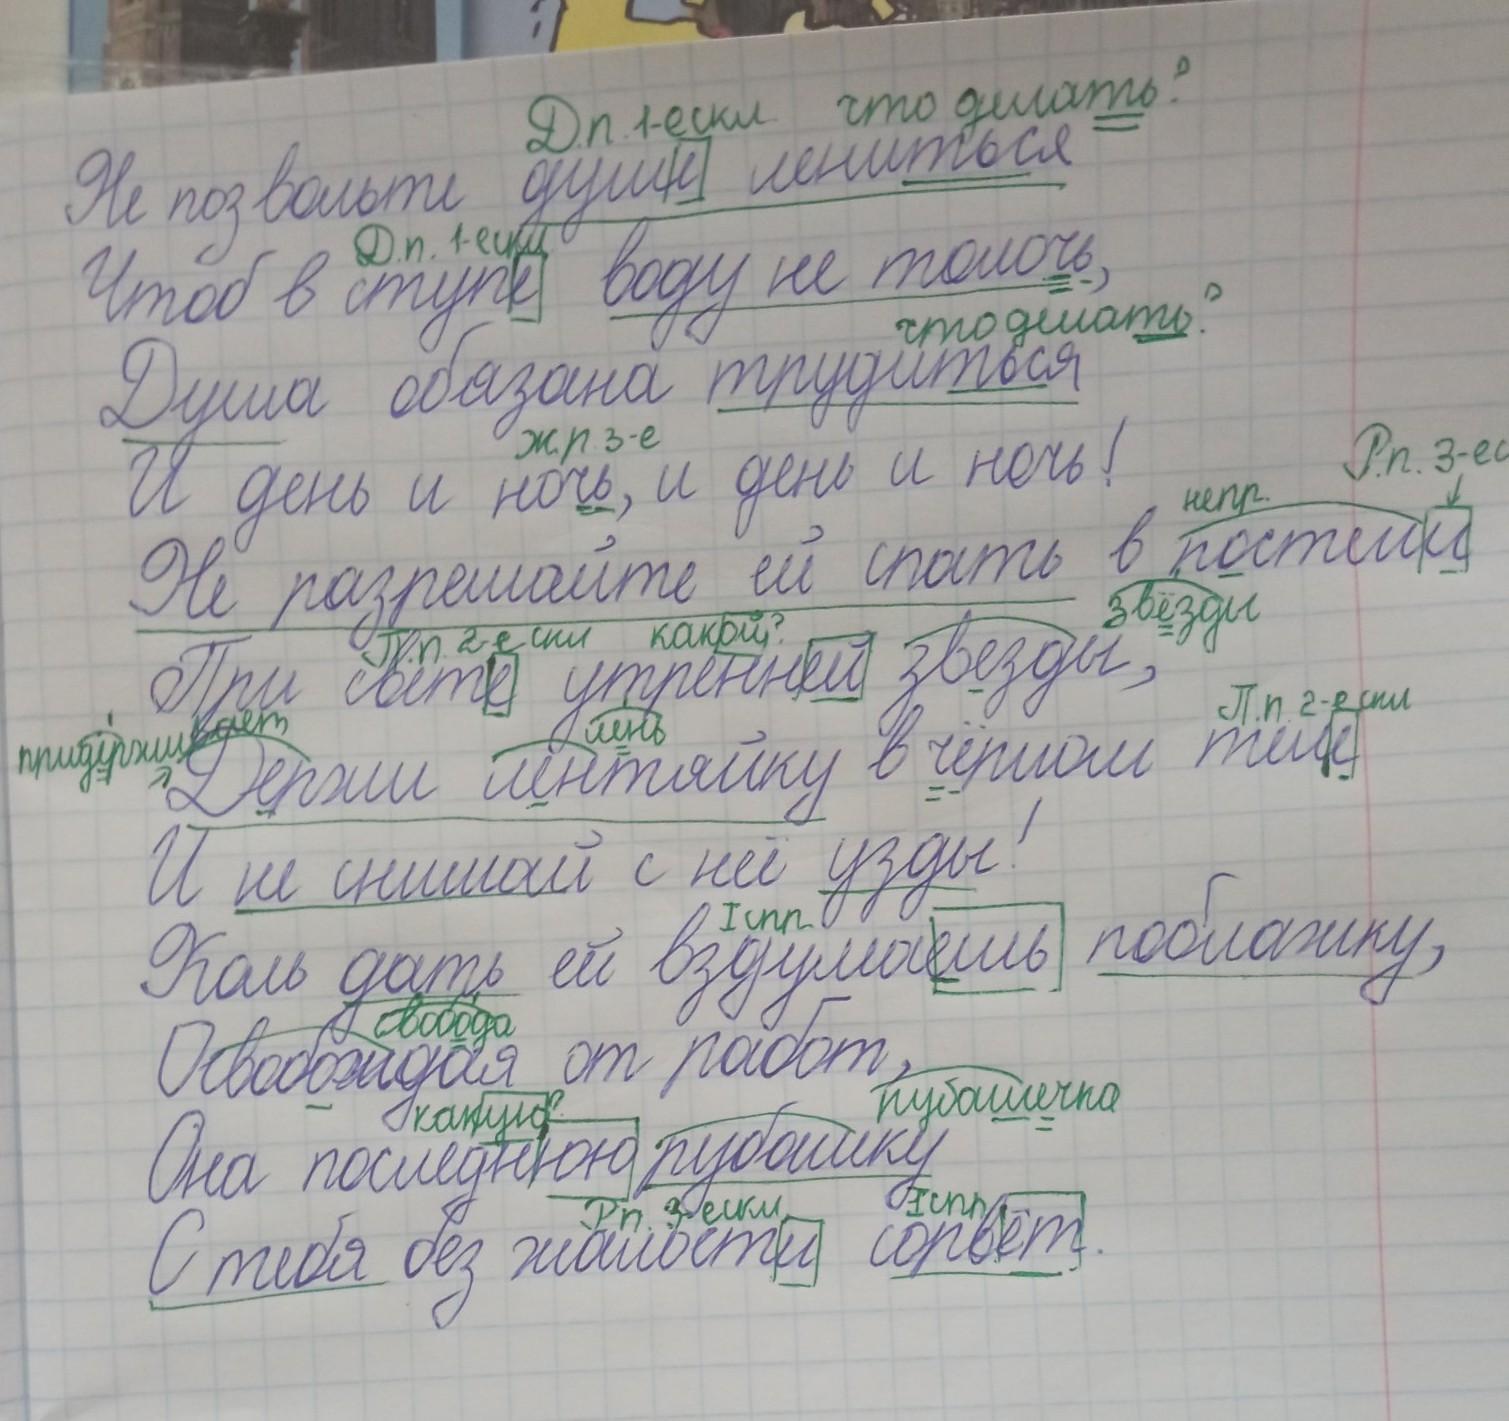 Д.п. 1-е скл что делать?
Не позвольте душе лениться
Д.п. 1-е скл
Чтоб в ступе воду не толочь,
что делать?
Душа обязана трудиться
ж.р. 3-е
И день и ночь, и день и ночь!
непр. Р.п. 3-е с
Не разрешайте ей спать в постели
звёзды
П.п. 2-е скл какой?
При свете утренней звезды,
придерживает лень П.п. 2-е скл
Держи лентяйку в чёрном теле
И не снимай с неё узды!
I спр.
Коль дать ей вздумаешь поблажку,
свобода
Освобождая от работ,
какую? рубашечка
Она последнюю рубашку
Р.п. 3-е скл. I спр.
С тебя без жалости сорвёт.